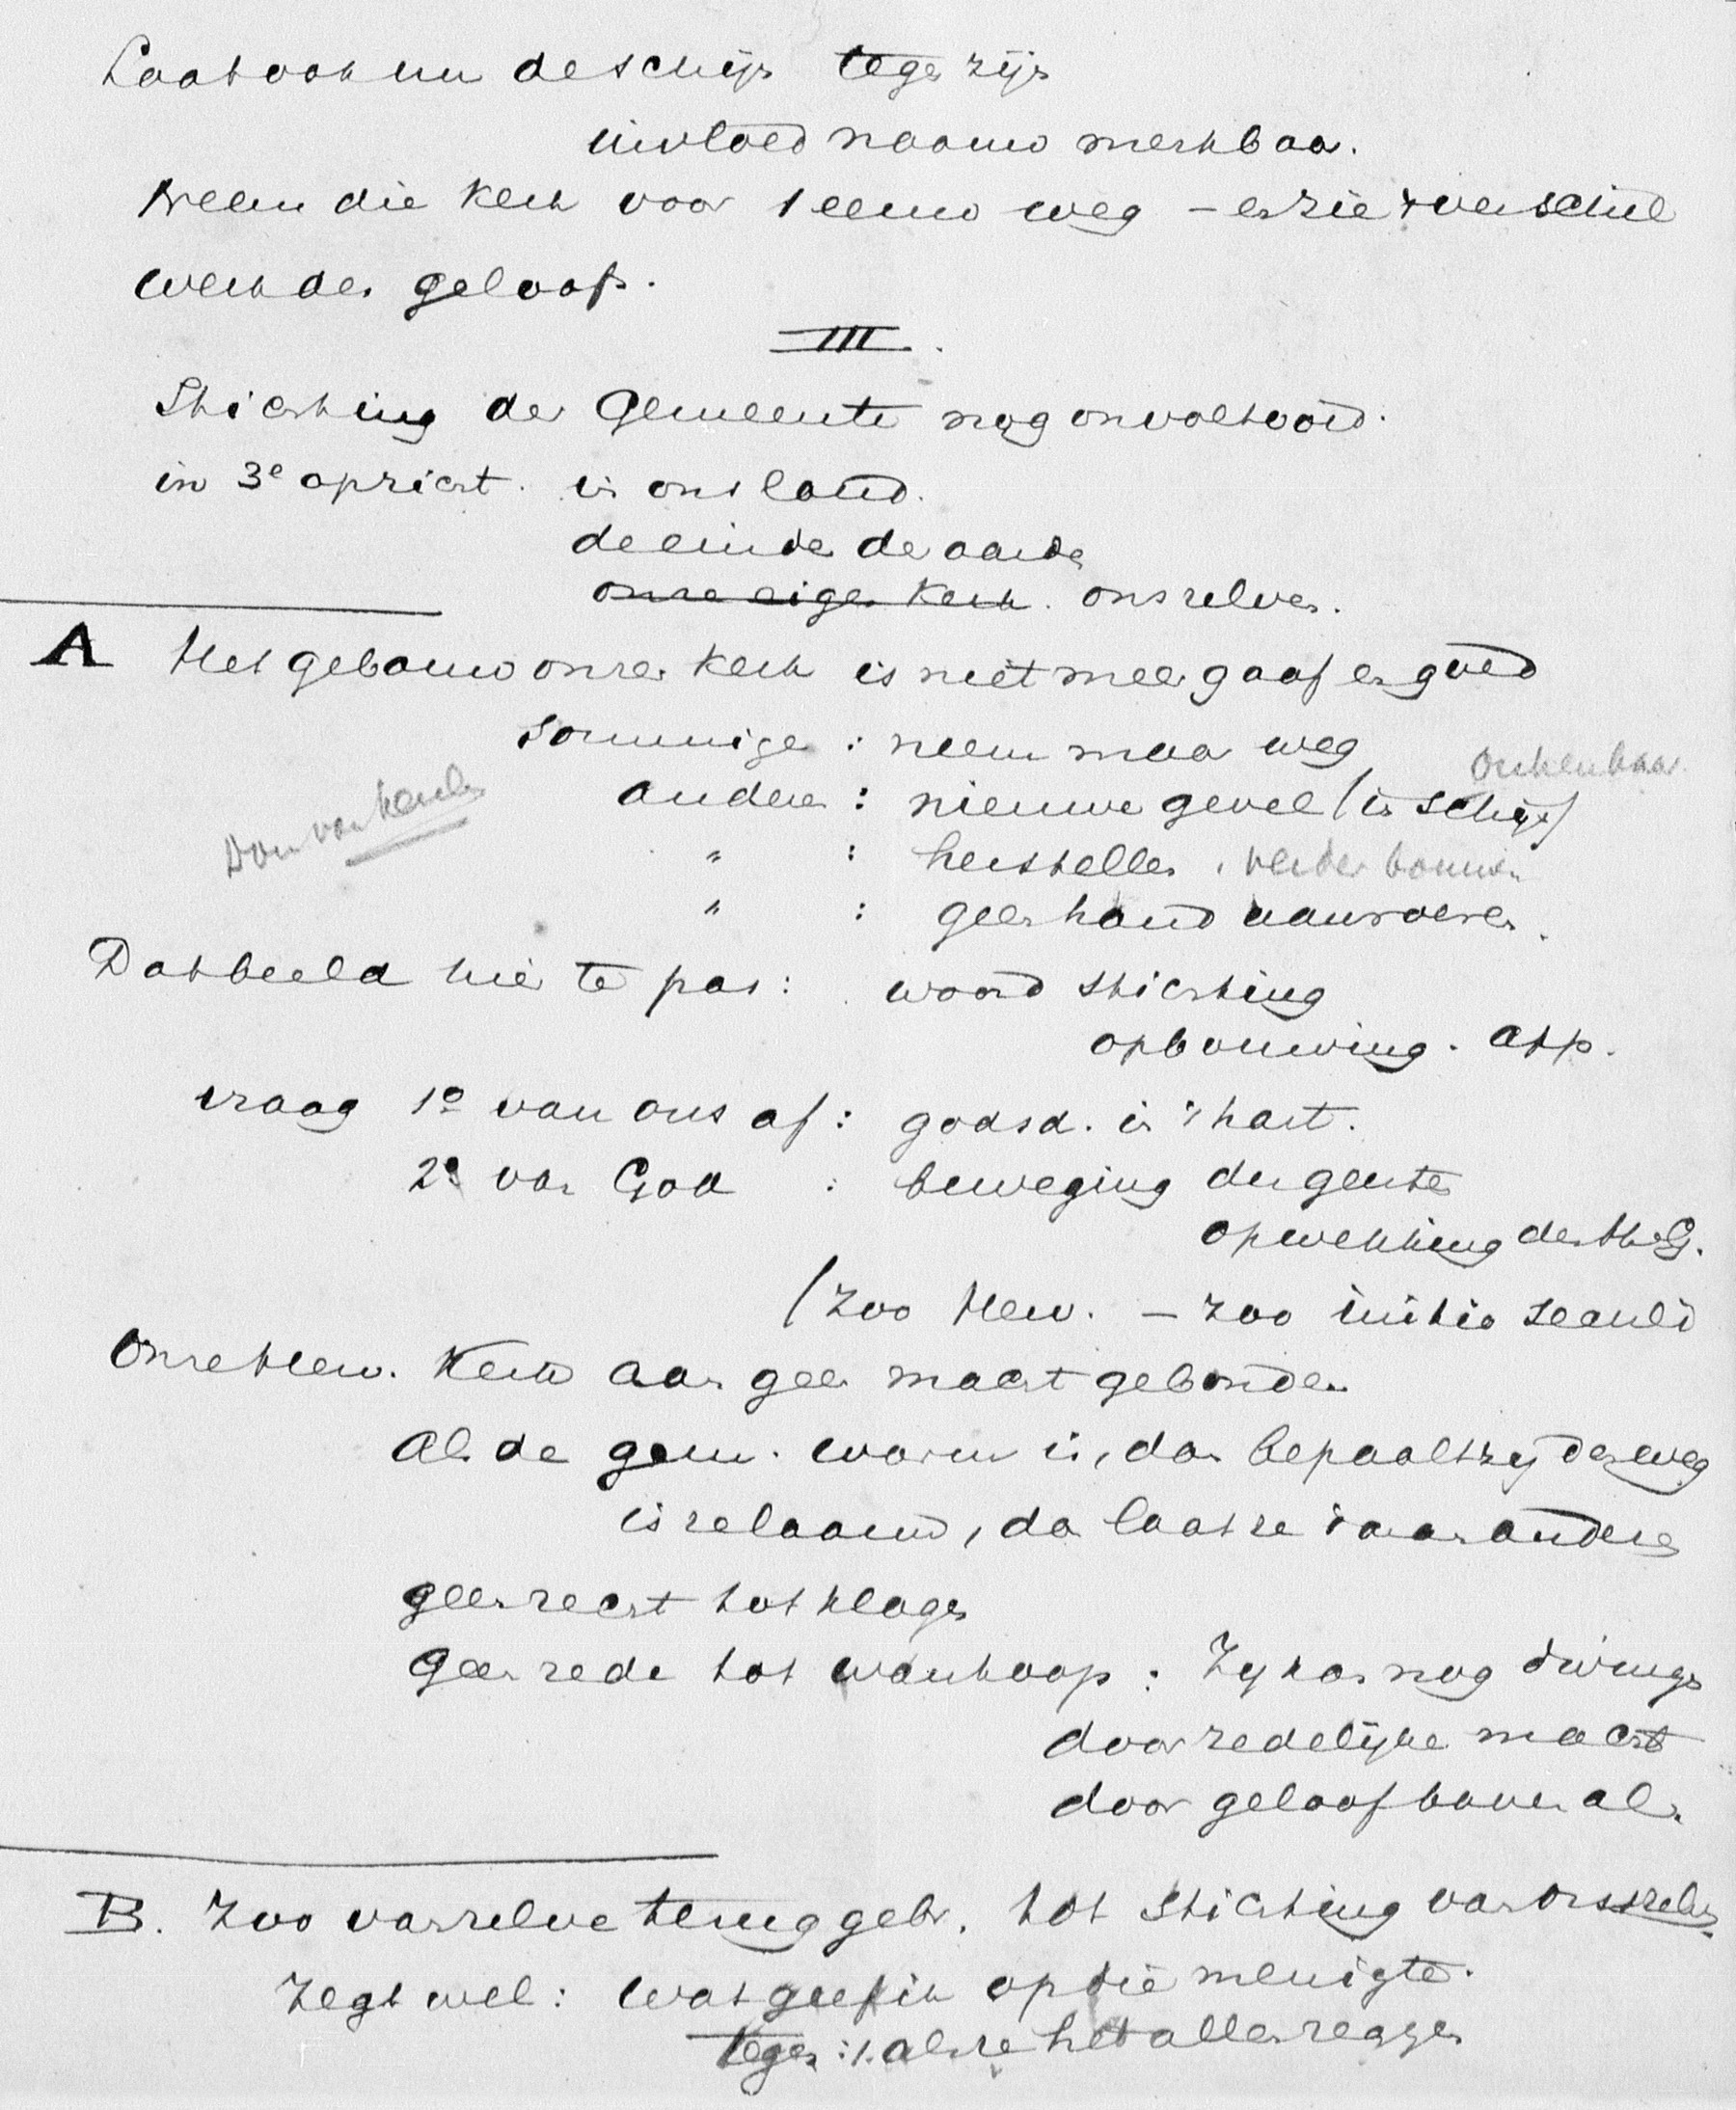 Laat ook nu de schijn tegen zijn
invloed naauw merkbaar.
Neem die kerk voor 1 eeuw weg – en zie 't verschil
werk des geloofs.
III.
Stichting der Gemeente nog onvoltooid.
in 3e opzicht. in ons land.
de einden der aarde
onze eigen kerk. ons zelven.
A Het gebouw onzer kerk is niet meer gaaf en goed
Sommigen : neem maar weg
onkenbaar.
anderen : nieuwe gevel (in schijn)
" : herstellen, verder bouwen
" : geen hand aan roeren.
Dat beeld hier te pas : woord stichting
opbouwing. app.
vraag 1o van ons af : godsd. in 't hart.
2o van God : beweging der geesten
opwekking des H. G.
(Zoo Herv. – zoo initio saeculi
Onze Herv. Kerk aan geen macht gebonden
Als de gem. warm is, dan bepaalt zij den weg
is ze laauw, dan laat ze 't aan anderen
geen recht tot klagen
Geen rede tot wanhoop : Zij kan nog dwingen
door zedelijke macht
door geloof bovenal.
B. Zoo van zelve teruggebr. tot stichting van ons zelven
Zegt wel : Wat geef ik op die menigte.
tegen : 1. als ze het allen zeggen